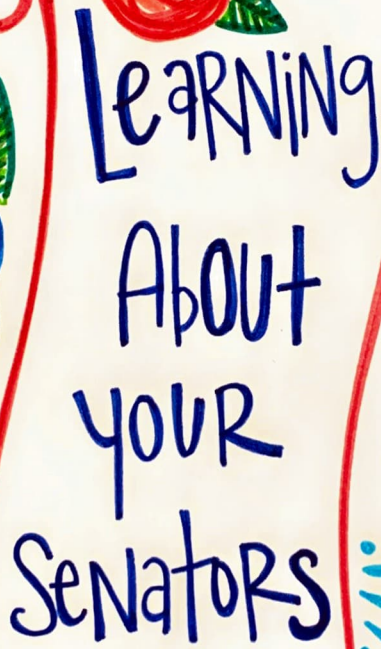 Learning
About
your
Senators